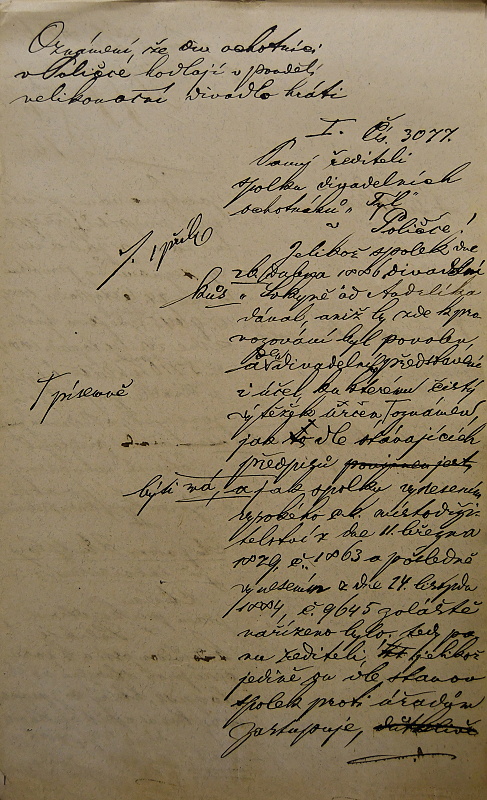 Oznámení, že dne ochotníci
v Poličce hodlají v pondělí
velikonoční divadlo hráti
I. Čís. 3077.
Panu řediteli
spolku divadelních
ochotníků „Tyl“
v Poličce!
Jelikož spolek dne
26. 1886 divadelní
kus „ od Anděla
dával, aniž by zde k pro
vozování byl povolen,
divadelní představení
i účel, ku kterému čistý
výtěžek určen, oznámen
písemně
jak to dle stávajících
předpisů
býti má, a jak spolku vynesením
vysokého c. k. místodrži-
telství z dne 11. března
1879, č. 1863 a posledně
vynesením z dne 24. listopadu
1884, č. 9645 zvláště
nařízeno bylo, tedy pa-
nu řediteli, jelikož
jedině on dle stanov
spolek proti úřadům
zastupuje,